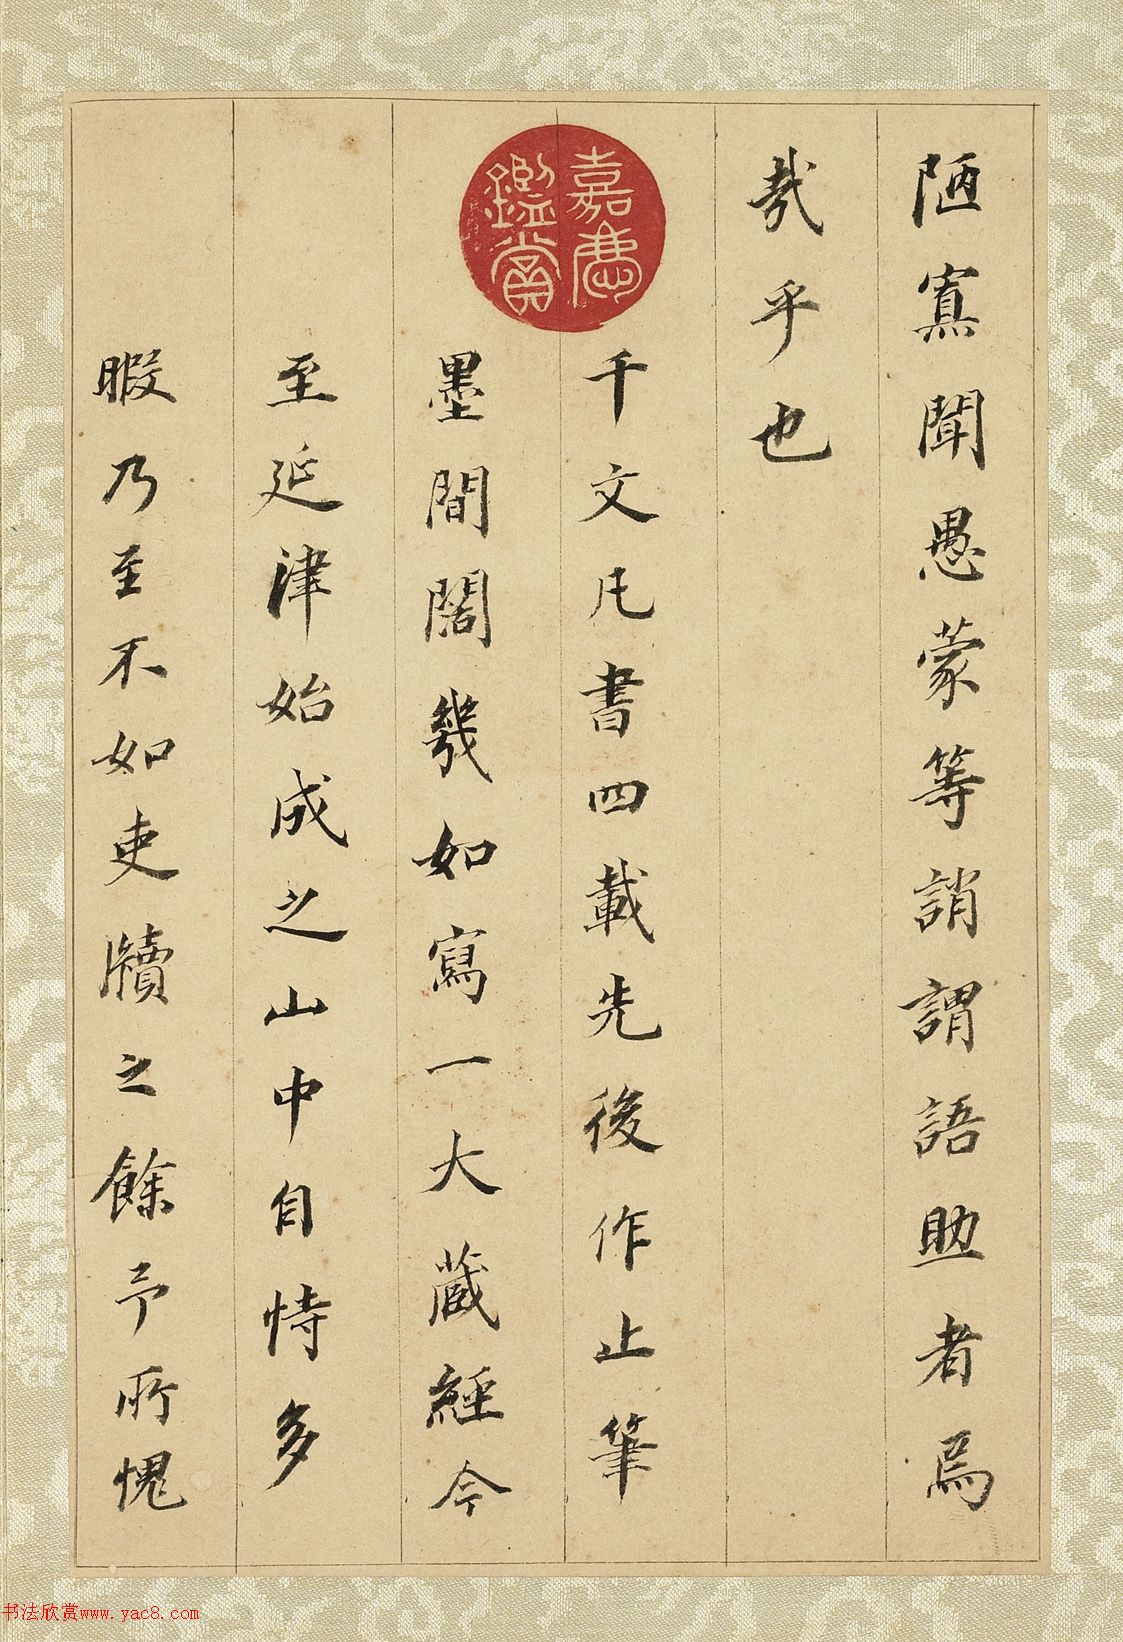 陋寡聞愚蒙等誚謂語助者焉
哉乎也
千文凡書四載先後作止筆
墨間闊幾如寫一大藏經今
至延津始成之山中自恃多
暇乃至不如吏牘之餘予所愧
嘉慶
鑑賞
书法欣赏www.yac8.com